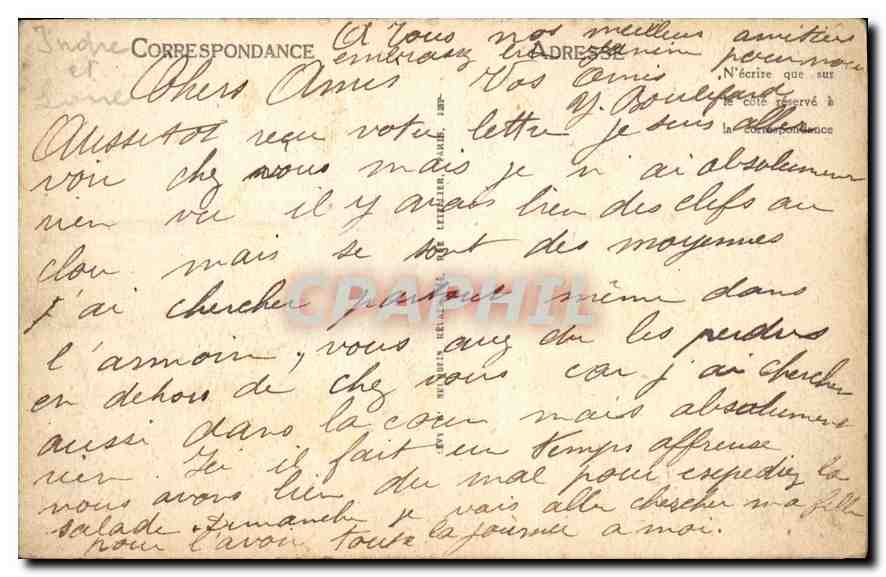 Indre
et
Loire
CORRESPONDANCE
ADRESSE
N'écrire que sur
le côté réservé à
la correspondance
A vous nos meilleurs amitiés
embrasez bien pour nous
Chers Amis Vos Amis
Y. Boulifard
Aussitot reçu votre lettre je suis aller
voir chez vous mais je n'ai absolument
rien vu il y avais bien des clefs au
clou mais se sont des moyennes
j'ai chercher partout même dans
l'armoire, vous avez du les perdus
en dehors de chez vous car j'ai chercher
aussi dans la cour mais absolument
rien. Ici il fait un temps affreuse
nous avons bien du mal pour expediez la
salade. Dimanche je vais aller chercher ma fille
pour l'avoir toute la journee a moi.
CPAPHIL